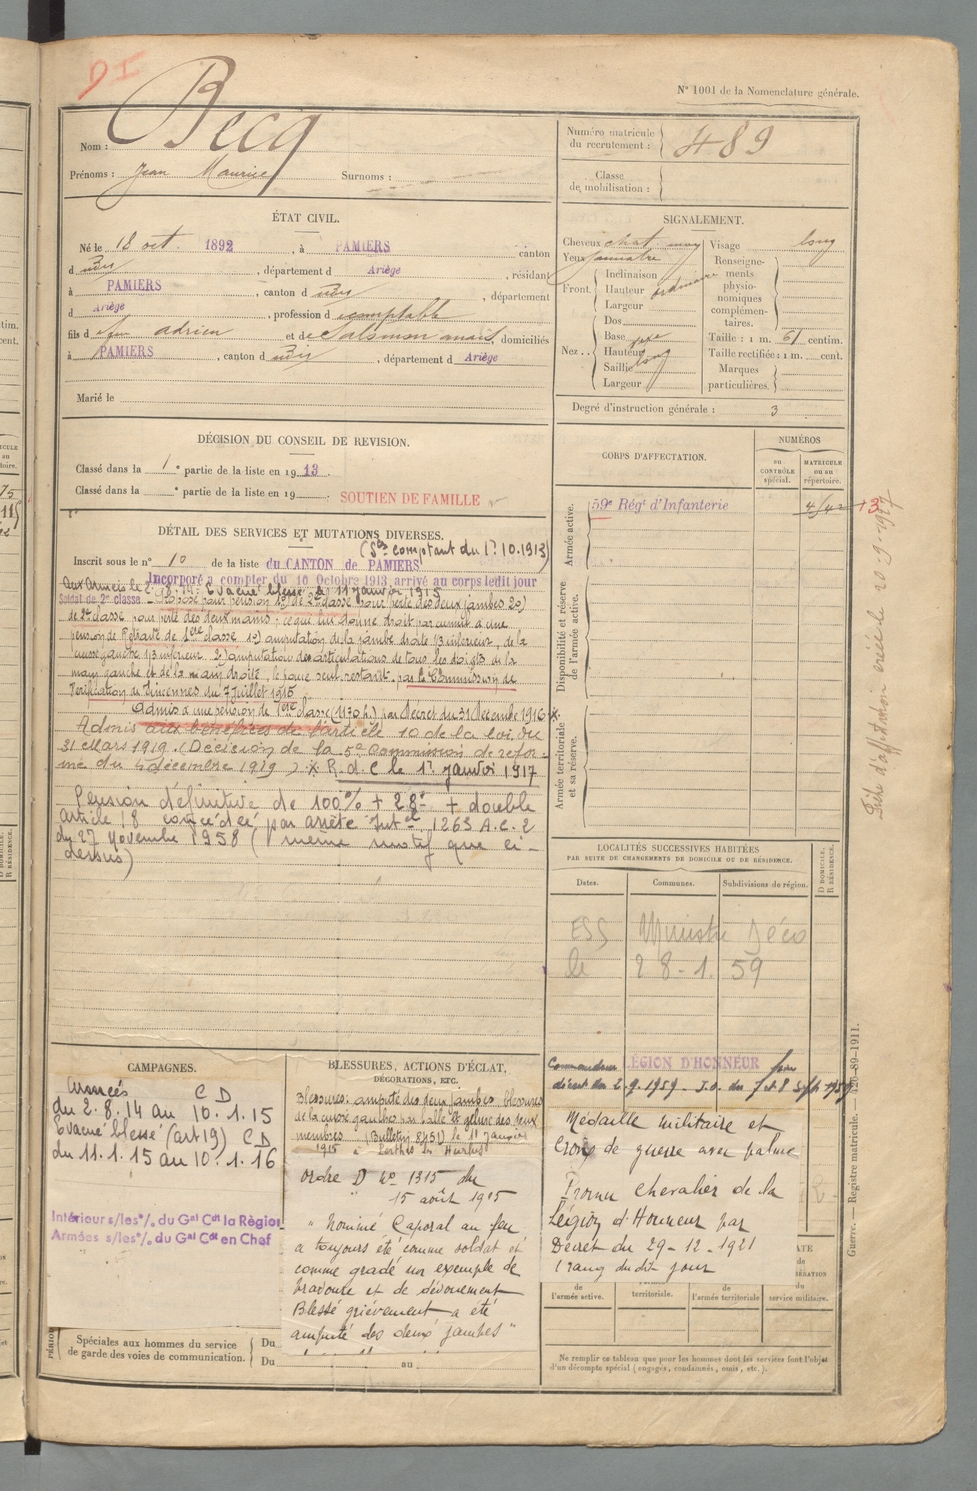 N° 1001 de la Nomenclature générale.
Nom : Becq
Prénoms : Jean Maurice Surnoms :
Numéro matricule du recrutement : 489
Classe de mobilisation :
ÉTAT CIVIL.
Né le 18 oct. 1892, à PAMIERS canton
d dudit, département d Ariège, résidant
à PAMIERS, canton d dudit, département
d Ariège, profession d comptable
fils d feu Adrien et de Salomon anaïs, domiciliés
à PAMIERS, canton d dudit, département d Ariège
Marié le
SIGNALEMENT.
Cheveux chat. moy
Yeux jaunâtre
Front. Inclinaison
Hauteur ordinaire
Largeur
Nez.. Dos
Base
Hauteur
Saillie long
Largeur
Visage long
Renseignements physionomiques complémentaires.
Taille : 1 m. 61 centim.
Taille rectifiée : 1 m. cent.
Marques particulières.
Degré d'instruction générale : 3
DÉCISION DU CONSEIL DE REVISION.
Classé dans la 1e partie de la liste en 1913.
Classé dans la e partie de la liste en 19
SOUTIEN DE FAMILLE
CORPS D'AFFECTATION.
NUMÉROS
au CONTRÔLE spécial.
MATRICULE ou au répertoire.
Armée active.
59e Régt d'Infanterie
Disponibilité et réserve de l'armée active.
Armée territoriale et sa réserve.
DÉTAIL DES SERVICES ET MUTATIONS DIVERSES.
(Sce comptant du 1er.10.1913)
Inscrit sous le n° 10 de la liste du CANTON de PAMIERS
Incorporé à compter du 10 Octobre 1913, arrivé au corps ledit jour
Soldat de 2e classe
Aux Armées le 2.8.14. Evacué blessé le 11 janvier 1915
Proposé pour pension 1°) de 2e classe pour perte des deux jambes 2°)
de 2e classe pour perte des deux mains ; ce qui lui donne droit par cumul à une
pension de retraite de 1ère classe 1°) amputation de la jambe droite 1/3 inférieur, de la
cuisse gauche 1/3 inférieur 2°) amputation des articulations de tous les doigts de la
main gauche et de la main droite, le pouce seul restant, par la Commission de
Vérification de Vincennes du 7 Juillet 1915.
Admis à une pension de 1ère classe (1170 f.) par Décret du 31 Décembre 1916 x.
Admis aux bénéfices de l'article 10 de la loi du
31 Mars 1919. (Décision de la 5e Commission de réfor-
me du 4 décembre 1919) x R.d.C le 1er janvier 1917
Pension définitive de 100% + 28° + double
article 18 concédée par arrêté Intel 1263 A.C.2
du 27 novembre 1958 (même motif que ci-
dessus)
LOCALITÉS SUCCESSIVES HABITÉES
PAR SUITE DE CHANGEMENTS DE DOMICILE OU DE RÉSIDENCE.
Dates. Communes. Subdivisions de région.
D DOMICILE. R RÉSIDENCE.
ESS Ministre Déco
le 28-1. 59
CAMPAGNES.
Armées C D
du 2.8.14 au 10.1.15
Evacué blessé (art 19) C D
du 11.1.15 au 10.1.16
Intérieur s/les o/. du Gal Cdt la Région
Armées s/les o/. du Gal Cdt en Chef
Spéciales aux hommes du service de garde des voies de communication.
Du
Du au
BLESSURES, ACTIONS D'ÉCLAT,
DÉCORATIONS, ETC.
Blessures : amputé des deux jambes blessures
de la cuisse gauche par balle et gelure des deux
membres (Bulletin 8451) le 11 Janvier
1915 à Perthes les Hurlus
Ordre D N° 1315 du
15 août 1915
" Nommé Caporal au feu
a toujours été comme soldat et
comme gradé un exemple de
bravoure et de dévouement
Blessé grièvement a été
amputé des deux jambes "
Commandeur LÉGION D'HONNEUR par
décret du 2.9.1959 - J.O. du 7 et 8 Sept 1959
Médaille militaire et
Croix de guerre avec palme
Promu Chevalier de la
Légion d'Honneur par
Décret du 29-12-1921
(rang du dit jour
de l'armée active.
territoriale.
de l'armée territoriale
du service militaire.
Ne remplir ce tableau que pour les hommes dont les services font l'objet
d'un décompte spécial (engagés, condamnés, omis, etc.).
Guerre. — Registre matricule. — 126-89-1911.